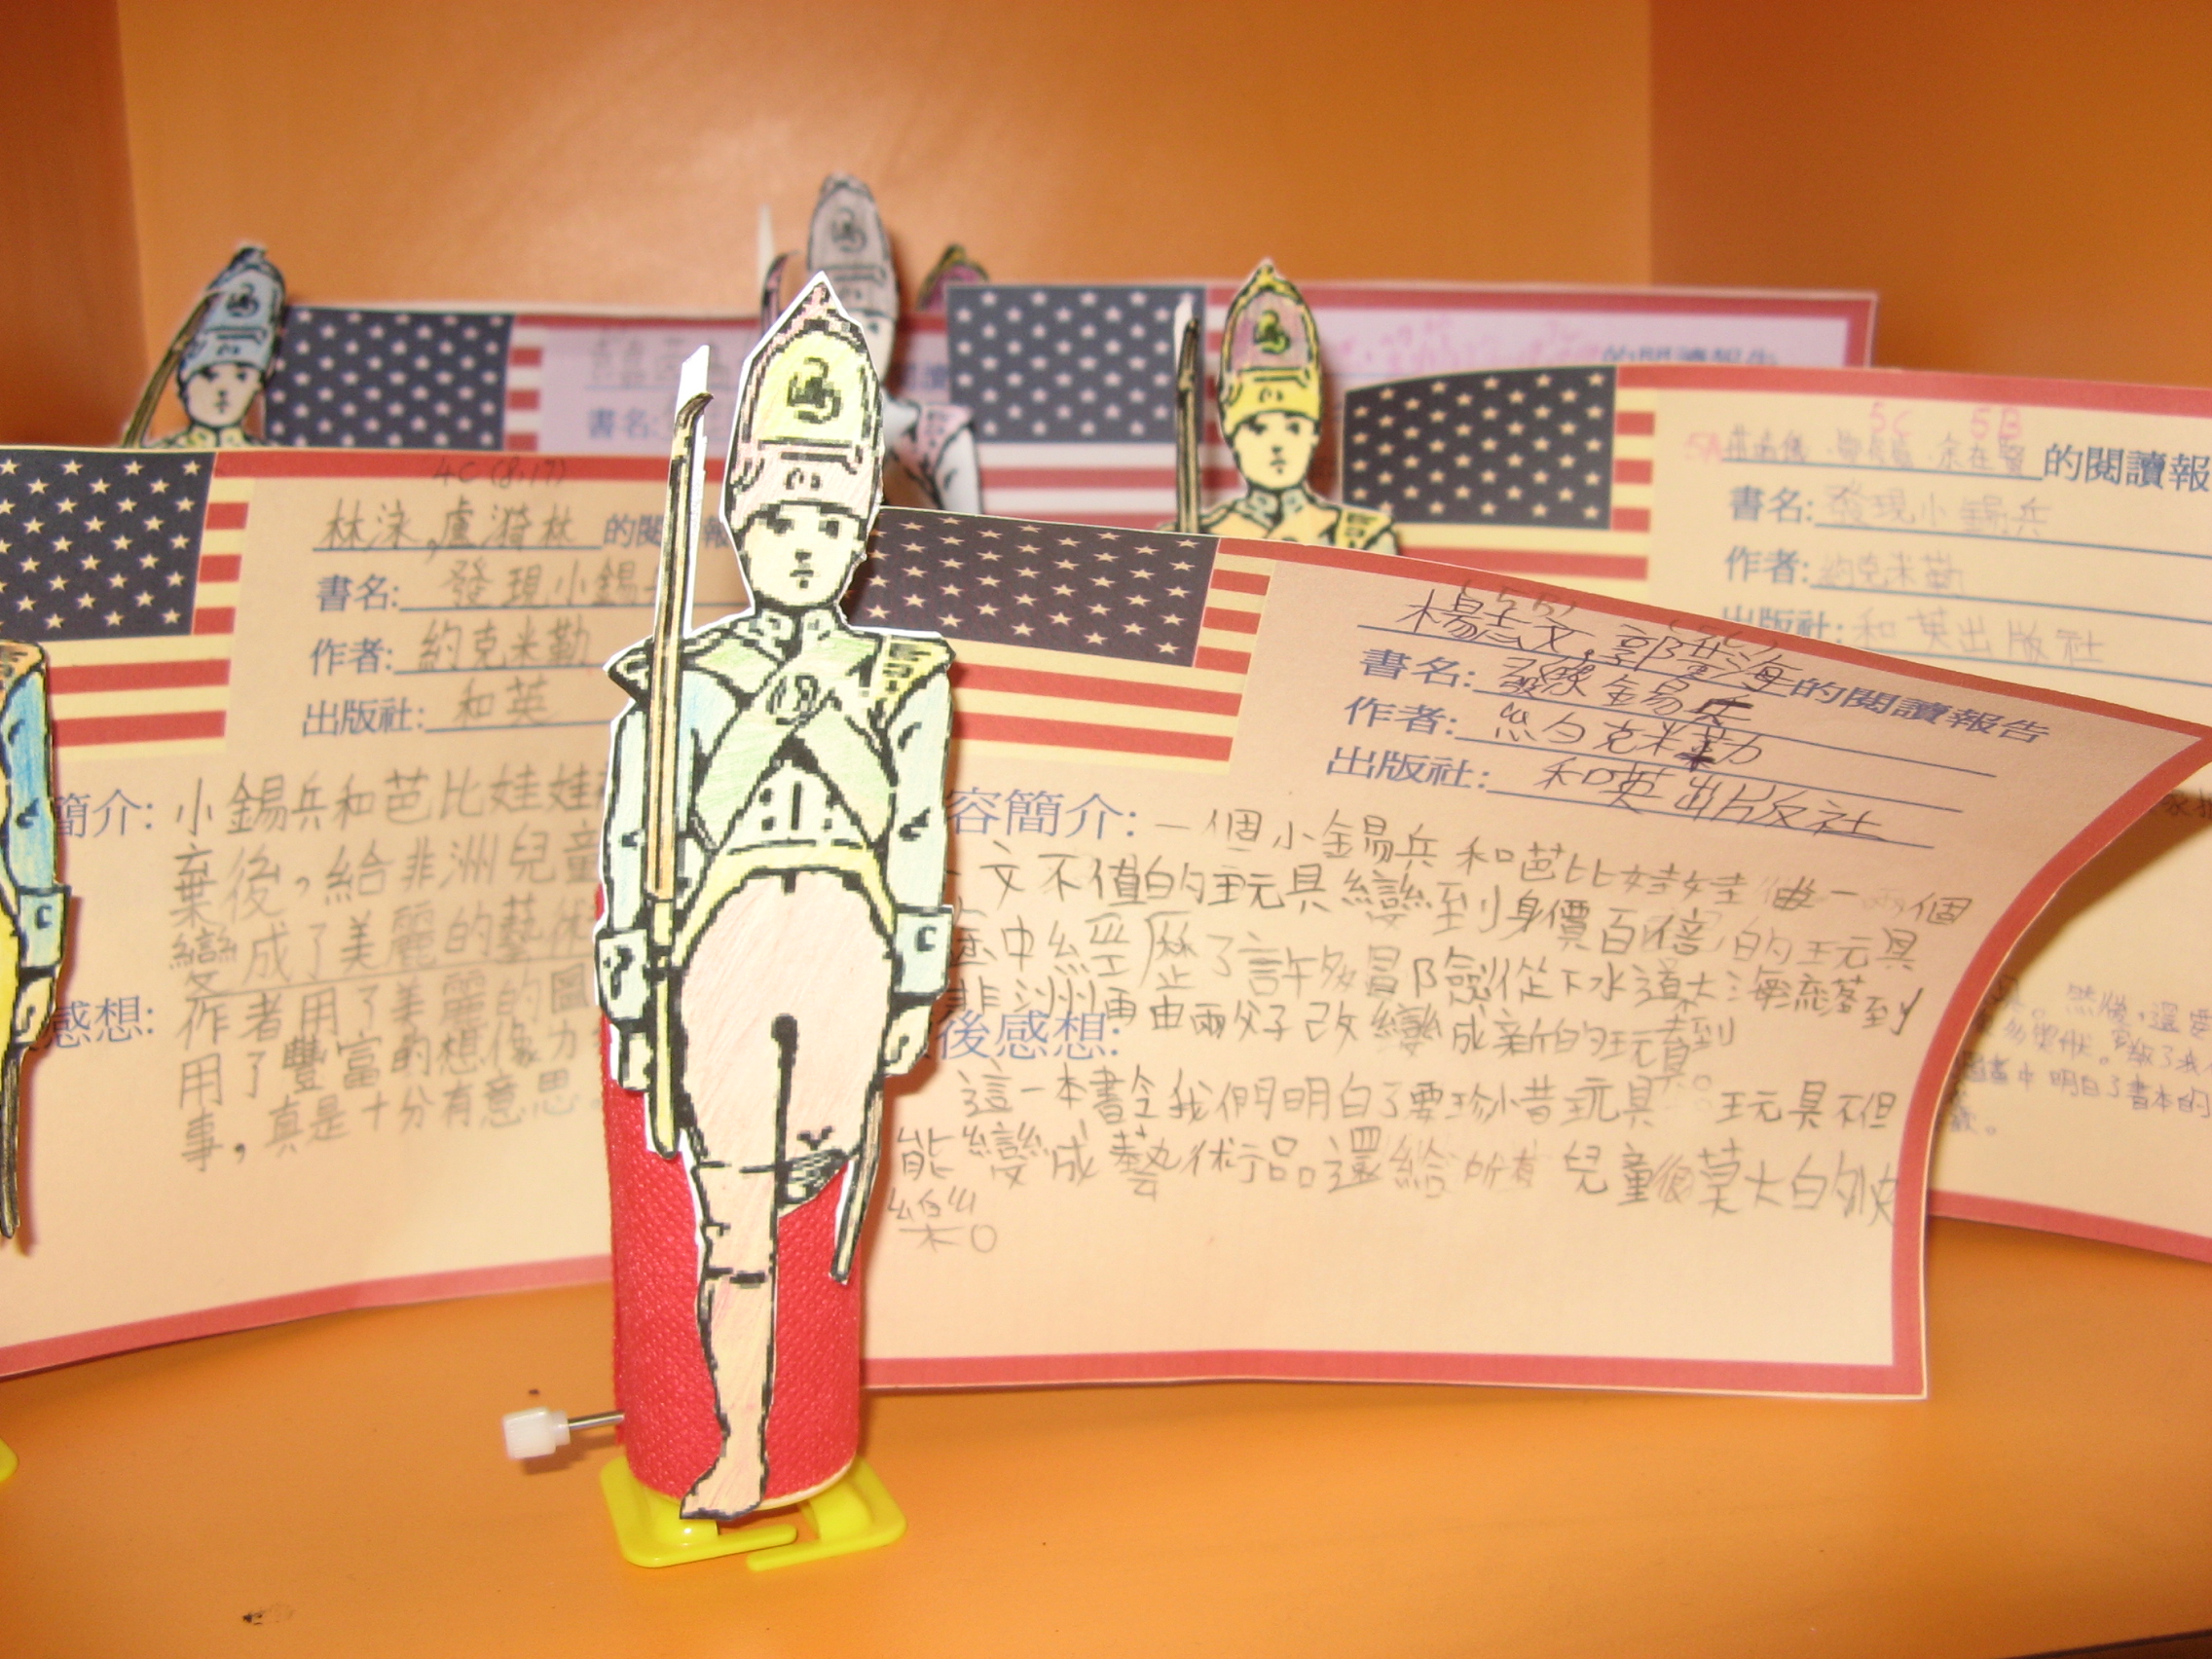 4C (8,17)
林泳,盧漪林 的閱
書名: 發現小錫
作者: 約克米勒
出版社: 和英
簡介: 小錫兵和芭比娃娃
棄後,給非洲兒童
變成了美麗的藝術
感想: 作者用了美麗的圖
用了豐富的想像力
事,真是十分有意思
書名:
的閱讀報告
5C 5B
5A
的閱讀報
書名: 發現小錫兵
作者: 約克米勒
出版社: 和英出版社
楊志文, 的閱讀報告
書名: 錫兵
作者: 約克米勒
出版社: 和英出版社
容簡介: 一個小錫兵和芭比娃娃由一個
文不值的玩具變到身價百倍的玩具
途中經歷了許多冒險從下水道大海流落到
非洲再由兩父子改變成新的玩具。
後感想:
這一本書令我們明白了要珍惜玩具 玩具不但
能變成藝術品還給所有兒童很莫大的快
樂。
。然後,還要
明白了書本的